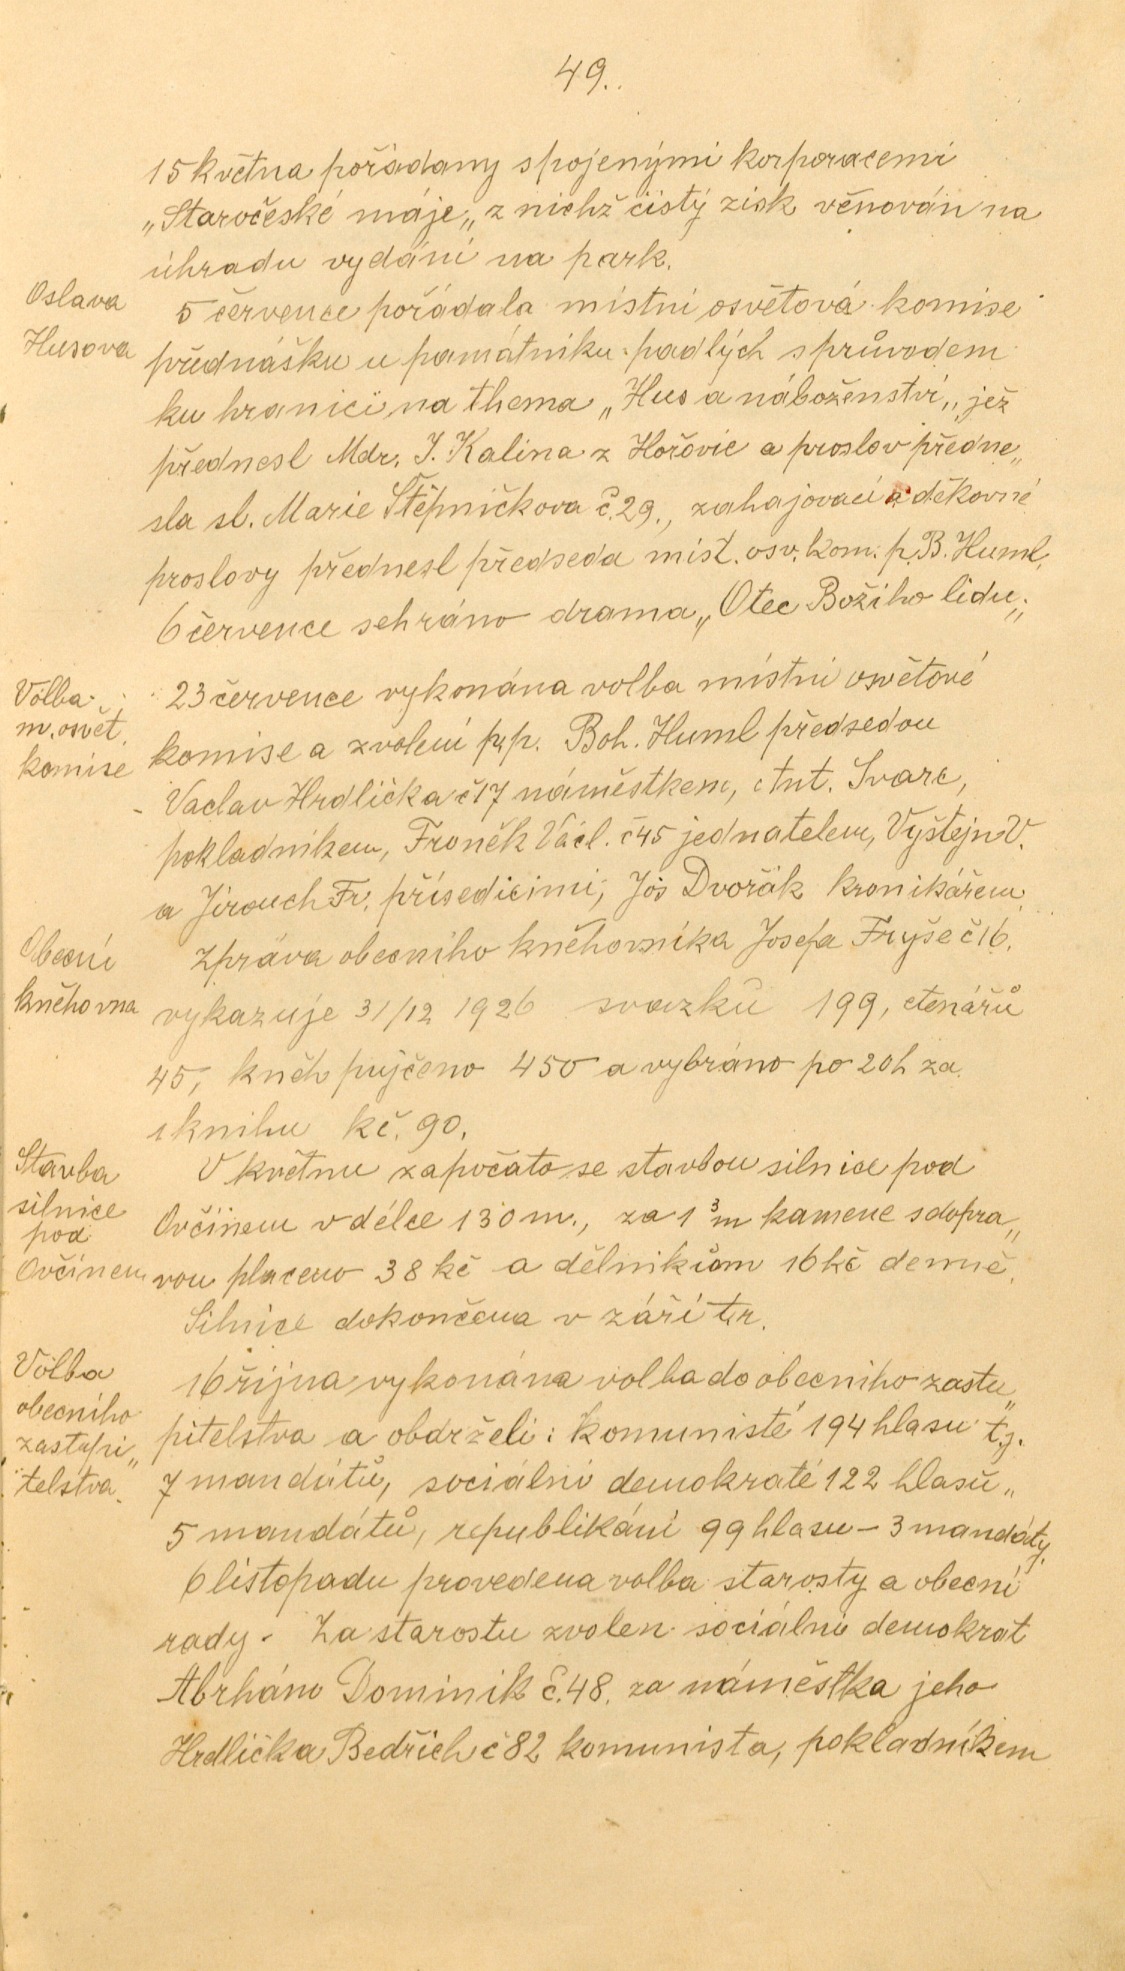 49.
15 května pořádany spojenými korporacemi
„Staročeské máje„ z nichž čistý zisk věnován na
úhradu vydání na park.
Oslava
Husova
5 července pořádala místní osvětová komise
přednášku u památníku padlých s průvodem
ku hranici na thema „Hus a náboženství„, jež
přednesl Mdr. J. Kalina z Hořovic a proslov předne„
sla sl. Marie Štěpničkova č.29., zahajovací a děkovné
proslovy přednesl předseda míst. osv. kom. p. B. Huml.
6 července sehráno drama „Otec Božího lidu„.
Volba
m. osvět.
komise
23 července vykonána volba místní osvětové
komise a zvoleni pp. Boh. Huml předsedou
Vaclav Hrdlička č17 náměstkem, Ant. Svarc,
pokladníkem, Froněk Václ. č45 jednatelem, Vyštejn V.
a Jirouch Fr. přísedicimi, Jos Dvořák kronikářem.
Obecní
kněhovna
Zpráva obecního kněhovníka Josefa Fryše č16.
vykazuje 31/12 1926 svazků 199, čtenářů
45, kněh pujčeno 450 a vybráno po 20h za
1 knihu kč. 90.
Stavba
silnice
pod
Ovčínem
V květnu započato se stavbou silnice pod
Ovčínem v délce 130 m., za 1 m³ kamene s dopra„
vou placeno 38 kč a dělníkům 16 kč denně.
Silnice dokončena v září t.r.
Volba
obecního
zastupi„
telstva.
16 října vykonána volba do obecního zastu„
pitelstva a obdrželi: komunisté 194 hlasu t.j.
7 mandátů, sociální demokraté 122 hlasů „
5 mandátů, republikáni 99 hlasu – 3 mandáty.
6 listopadu provedena volba starosty a obecní
rady - Za starostu zvolen sociální demokrat
Abrhám Dominik č.48. za náměstka jeho
Hrdlička Bedřich č82 komunista, pokladníkem